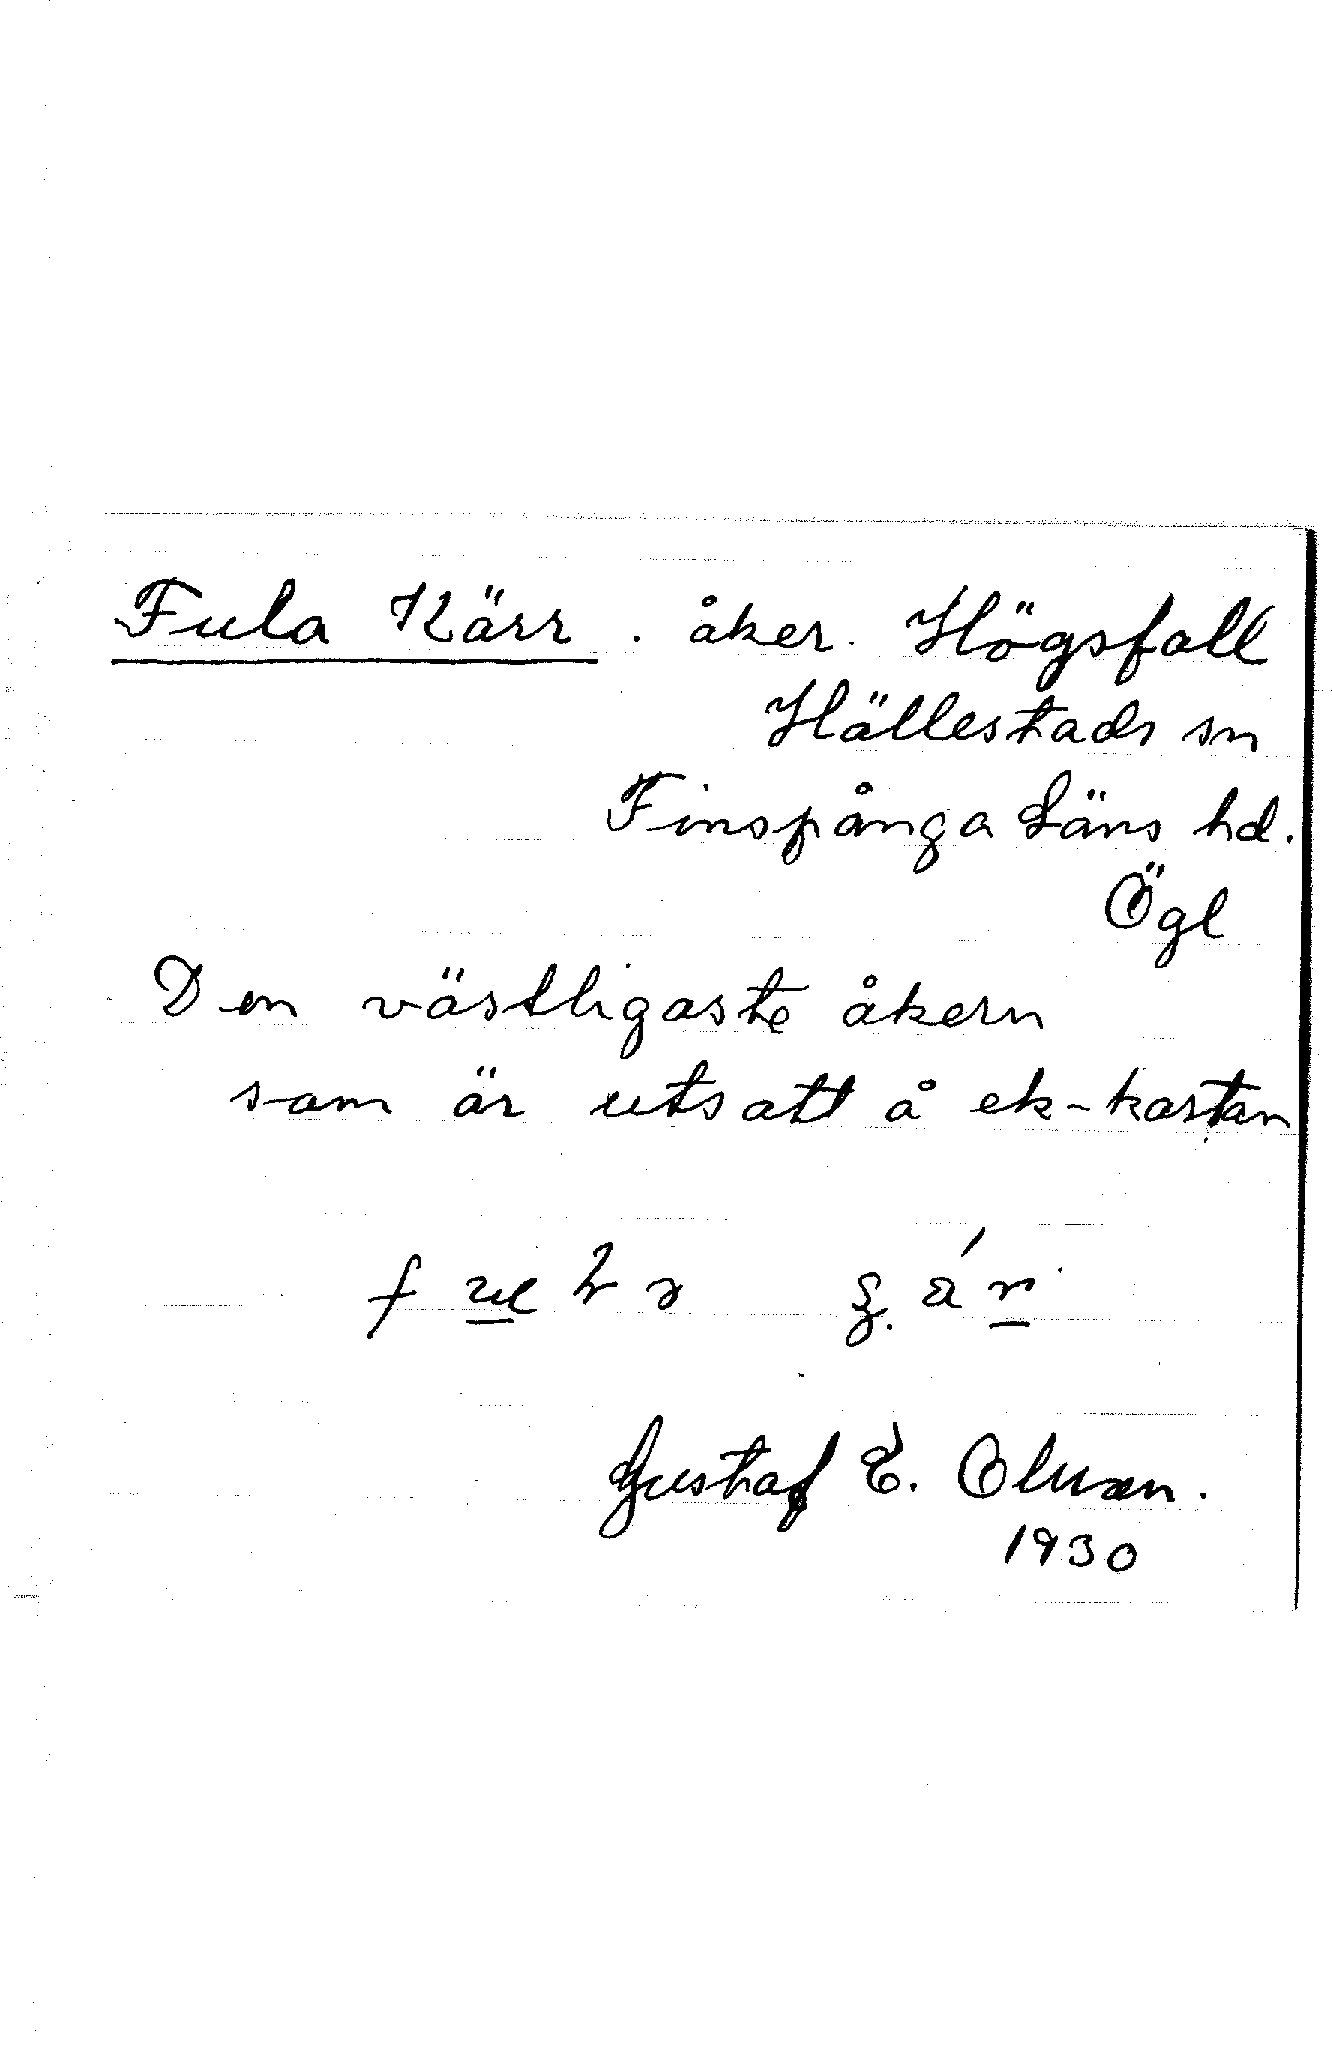 Fula Kärr . åker. Högsfall
Hällestads sn
Finspånga Läns hd.
Ögl
Den västligaste åkern
som är utsatt å ek-kartan
Gustaf E.
1930